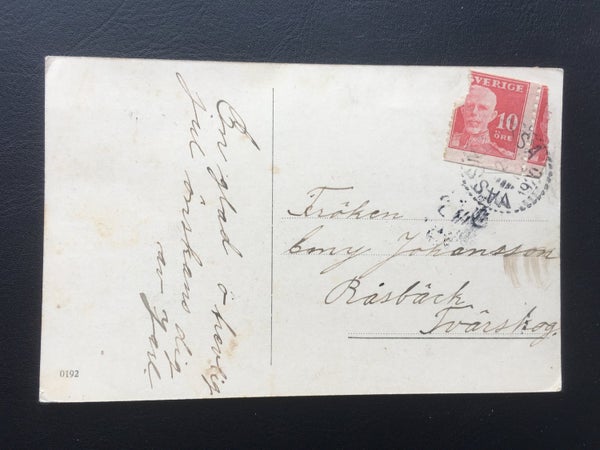 En glad o trevlig
Jul önskans dig
av Joel.
0192
SVERIGE
10
ÖRE
Fröken
Cony Johansson
Råsbäck
Tvärskog.